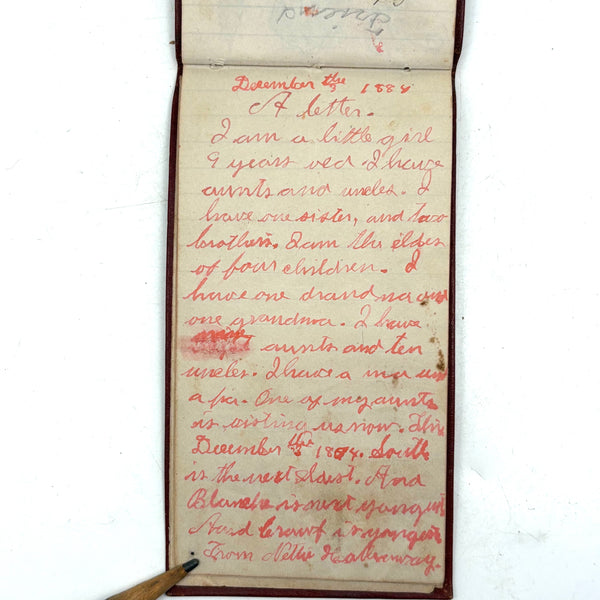 December the 3 1884
A letter.
I am a little girl
9 years old. I have
aunts and uncles. I
have one sister, and two
brothers. I am the eldes
of four children. I
have one
one grandma. I have
aunts and ten
uncles. I have a ma
a pa. One of my aunts
is visiting us now. This
December the 3 1884.
is the next eldest. And
Blanche is next youngest
And is youngest
From Nettie